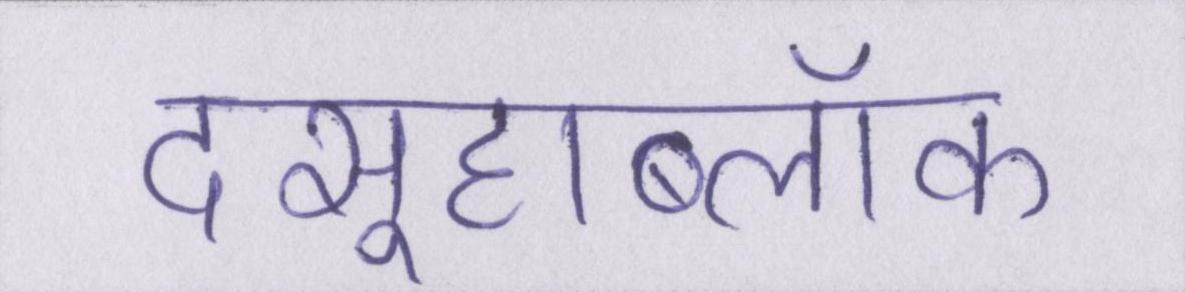 दसूहाब्लॉक